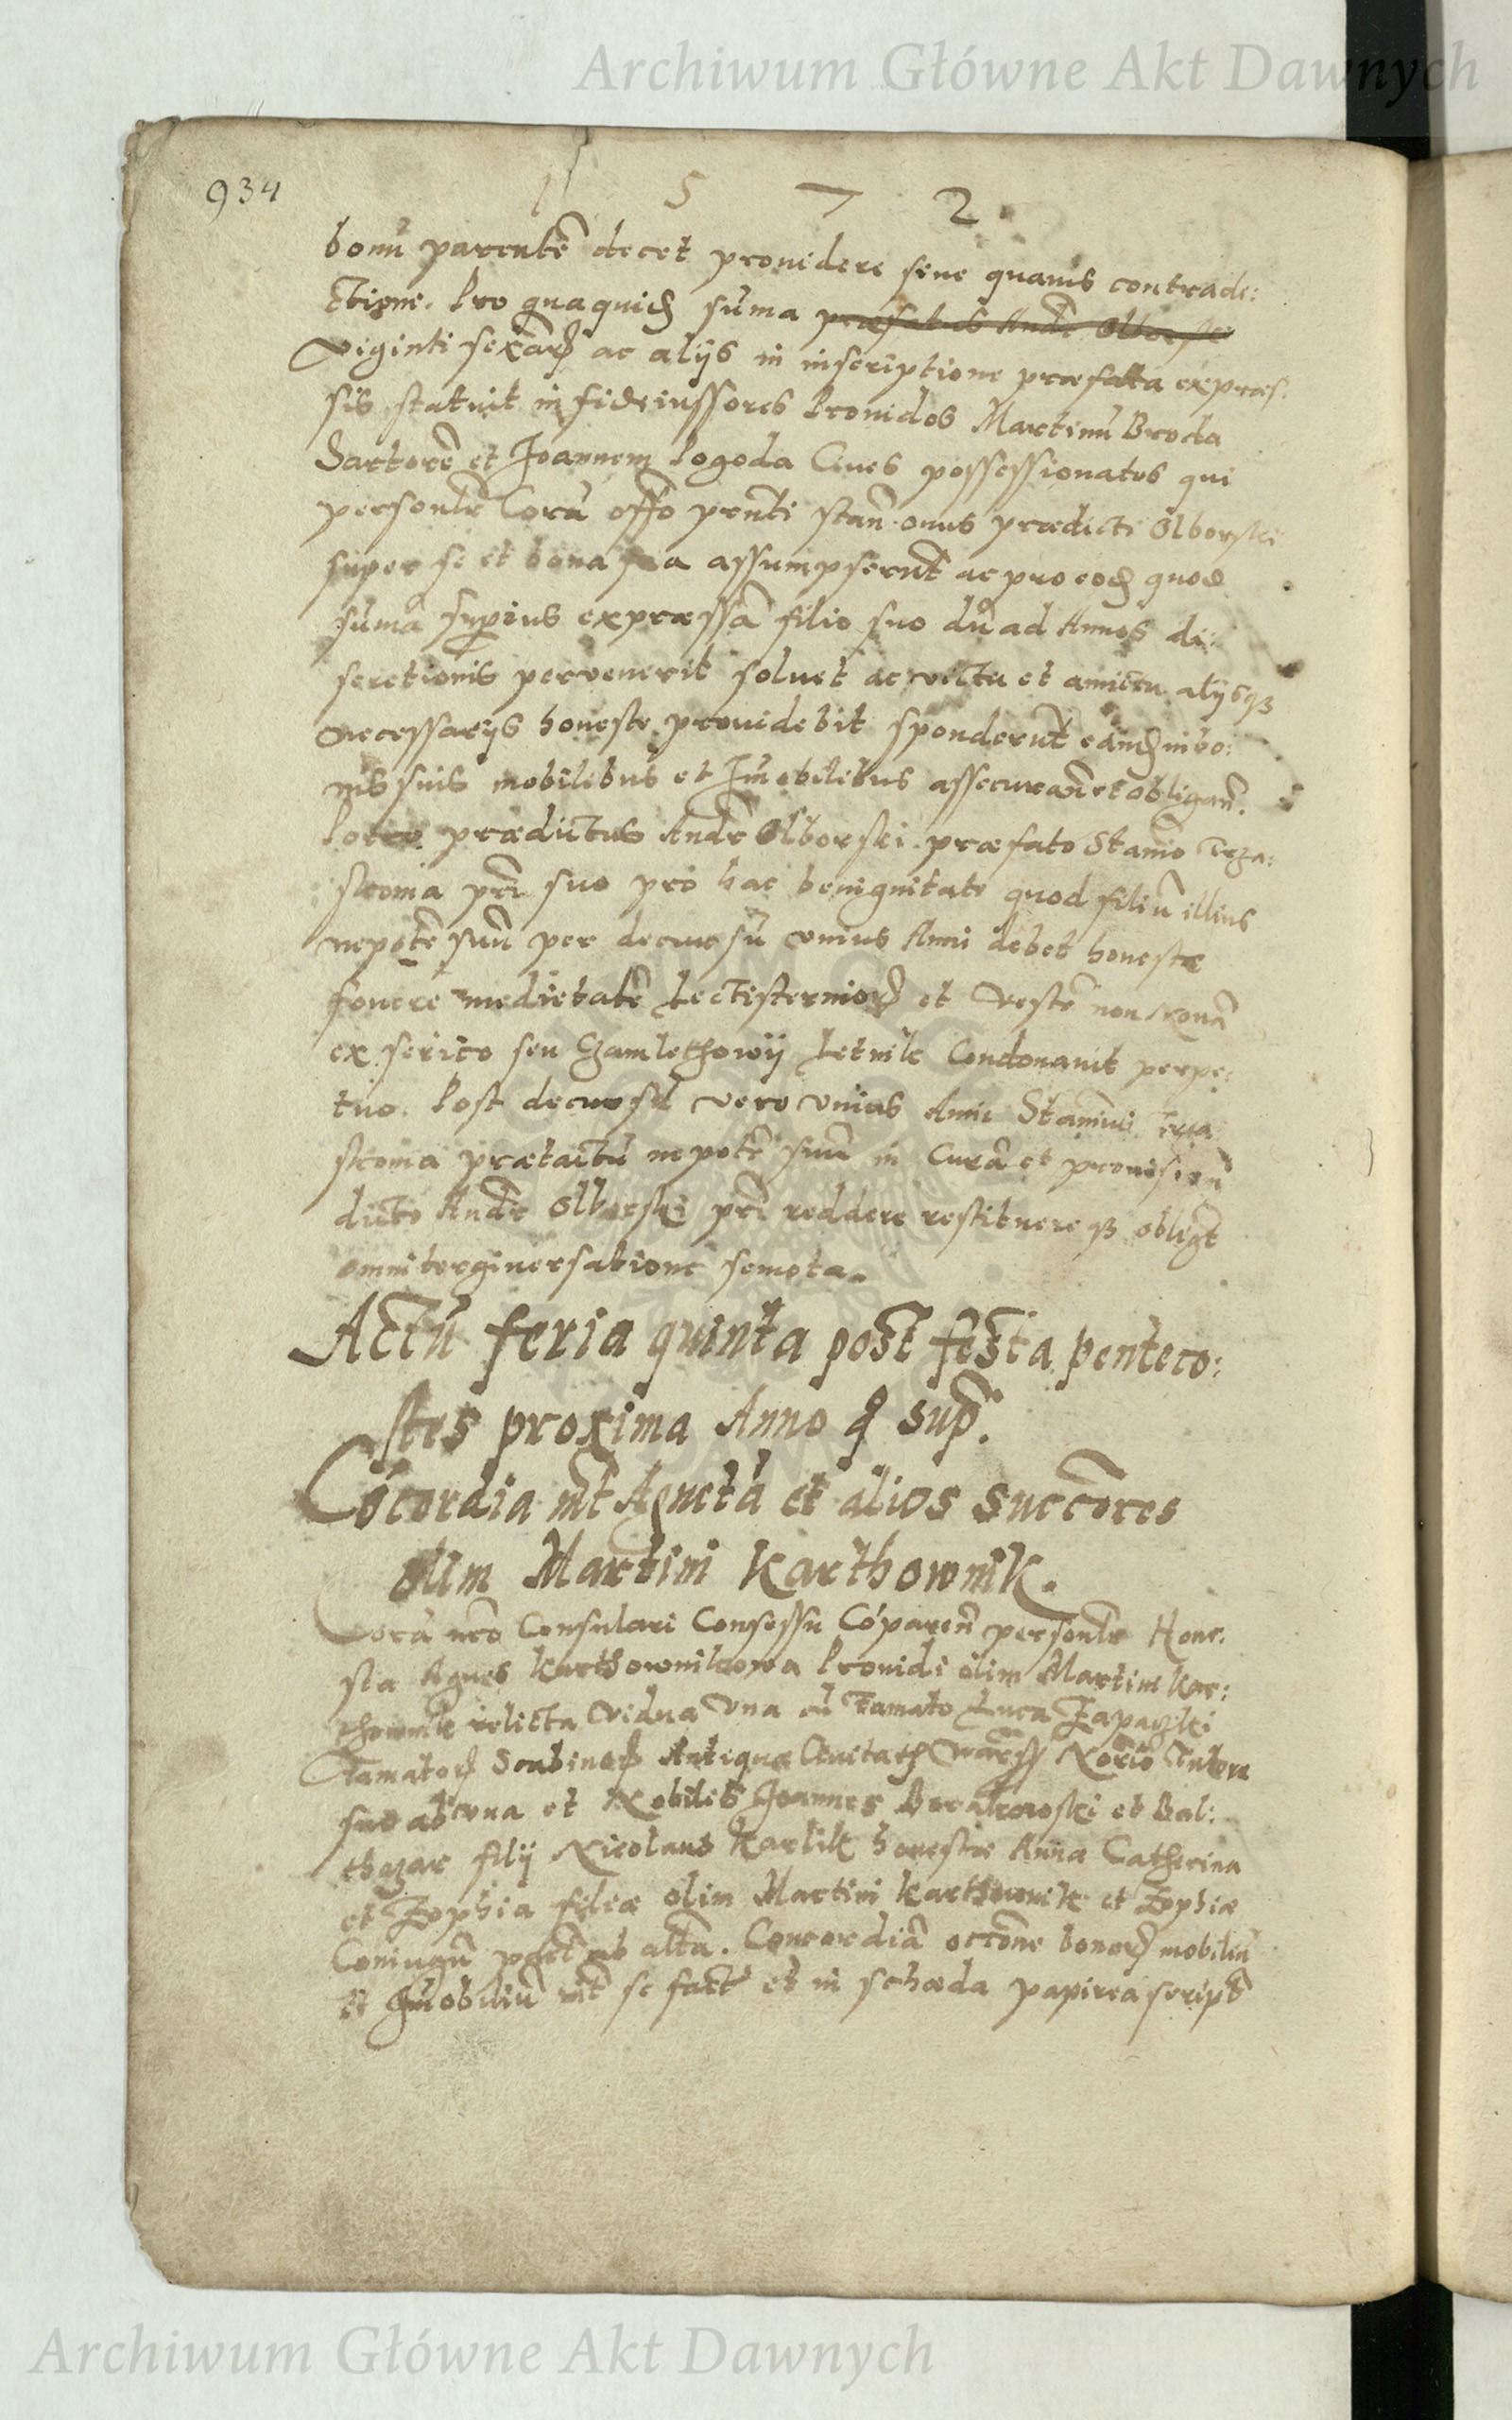 Archiwum Główne Akt Dawnych
934
1 5 7 2
bonũ parentẽ decet prouidere sine quauis contradi:
ctione. Pro quaquidẽ sũma praefatus Andr̃ Olborski
viginti sexãr̃ ac alijs in inscriptione praefatta expraes:
sis statuit in fideiussores Prouidos Martinũ Broda
Sartorẽ et Joannem Pogoda Ciues possessionatos qui
personlr̃ Corã offõ prñti stañ. onus praedicti Olborski
super se et bona sua assumpserũt ac pro eodẽ quod
sũmã superius expraessã filio suo dũ ad Annos di:
scretionis peruenerit soluet ac victu et amictu alijsq3
necessarijs honeste prouidebit sponderũt eamdẽ in bo:
nis suis mobilibus et Im̃obilibus assecurañ et obligañ.
praedictus Andr̃ Olborski praefato Stanið Trza:
skoma pr̃i suo pro hac benignitate quod filiũ illius
nepotẽ suũ per decursũ vnius Anni debet honestae
fouere medietatẽ Lectisternior̃ et vestẽ non
ex serico seu Czamlethowij Letnik Condonauit perpe:
tuo. Post decursũ vero vnius Anni Stanislai Trza
skoma praetactũ nepotẽ suũ in Curã et prouisionẽ
dicto Andr̃ Olborski pr̃i reddere restituereq3 obligt̃
omni tergiuersatione semota.
Actũ feria quinta post festa penteco:
stes proxima Anno q̃ sup̃.
Cõcordia int̃ Agnetã et alios succõres
olim Martini Karthownik.
Corã nr̃o Consulari Consessu Cõpareñ personlr̃ Hone:
sta Agnes Karthownikowa Prouidi olim Martini Kar:
thownik relicta vidua vna cũ Famato Luca Zapaczki
Famator̃ Scabinor̃ Antiquae Ciuitatis Warss̃ Notr̃io Tutore
suo ab vna et Nobiles Joannes et Bal:
thazar filij Nicolaus Karlik honestae Anna Catherina
et Zophia filiae olim Martini Karthownik et Zophiae
Coniugũ ab alt̃a. Concordiã occõne bonor̃ mobiliũ
et Im̃obiliũ int̃ se factã et in schaeda papirea scriptã
Archiwum Główne Akt Dawnych